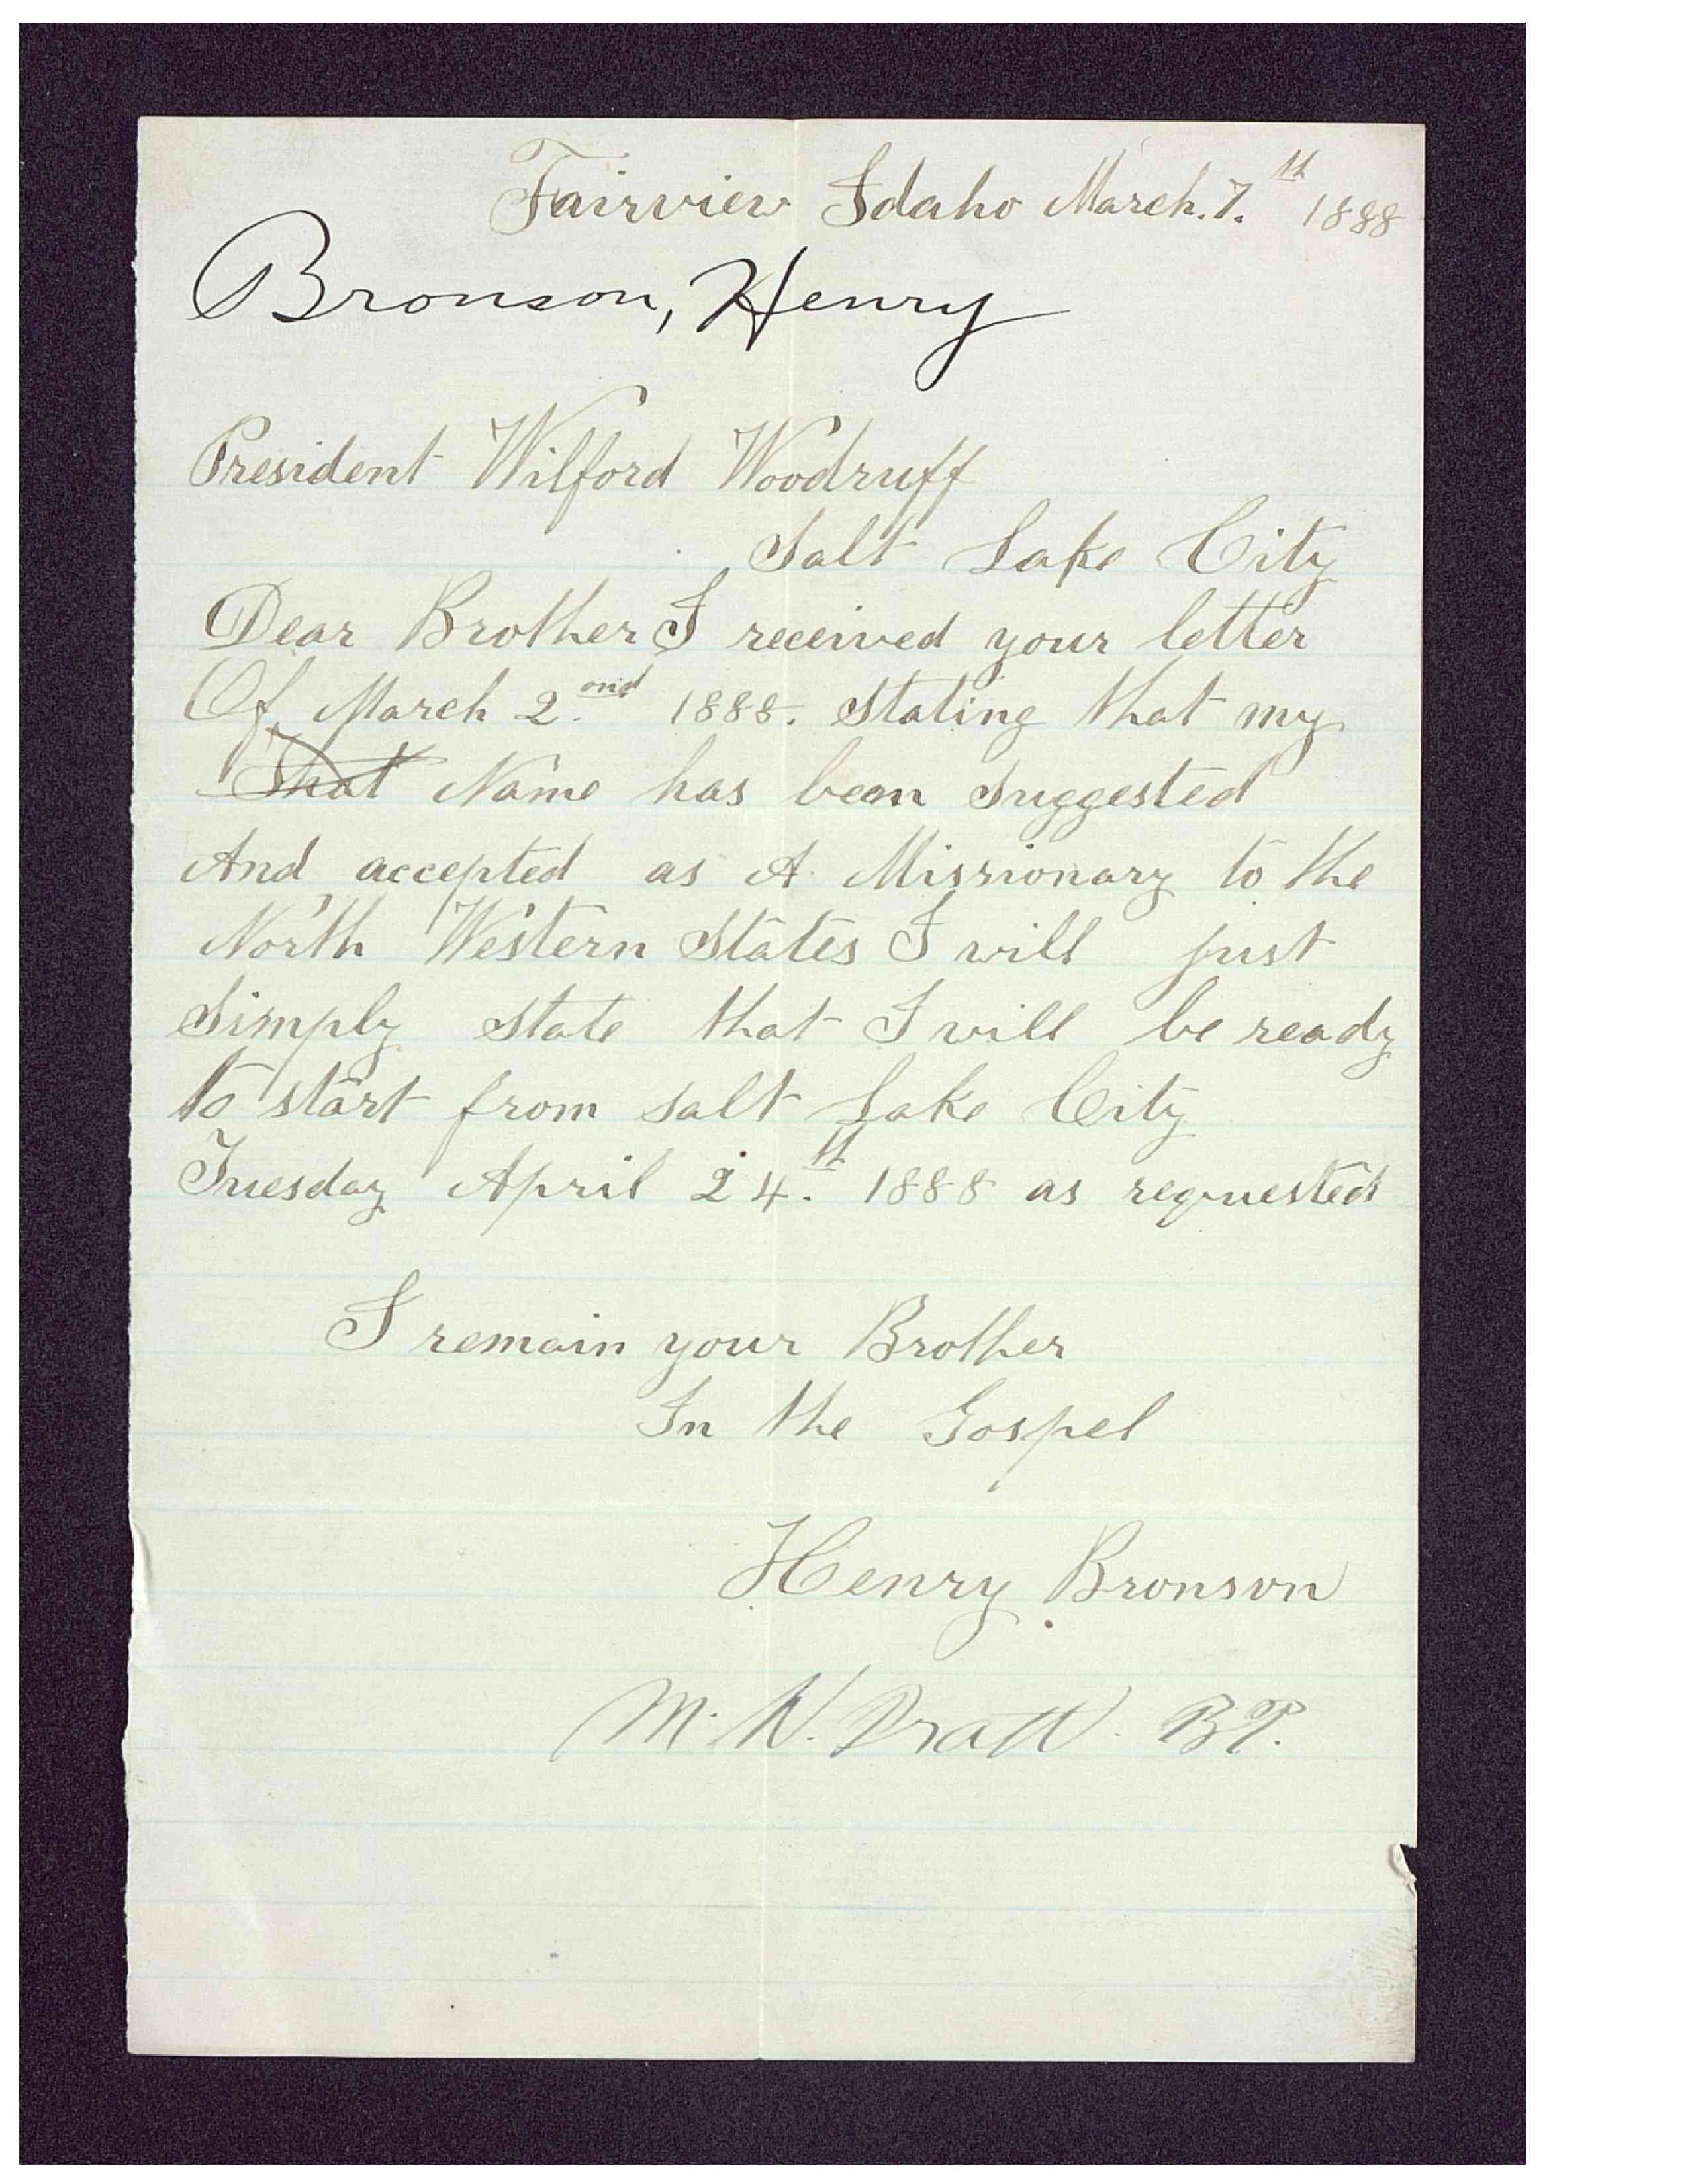 Fairview Idaho March. 7.th 1888
Bronson, Henry
President Wilford Woodruff
Salt Lake City
Dear Brother I received your letter
Of March 2.ond 1888. Stating that my
That Name has been Suggested
And accepted as A Missionary to the
North Western States I will just
Simply State that I will be ready
to start from Salt Lake City
Tuesday April 24.th 1888 as requested
I remain your Brother
In the Gospel
Henry Bronson
M. W. Pratt. BP.